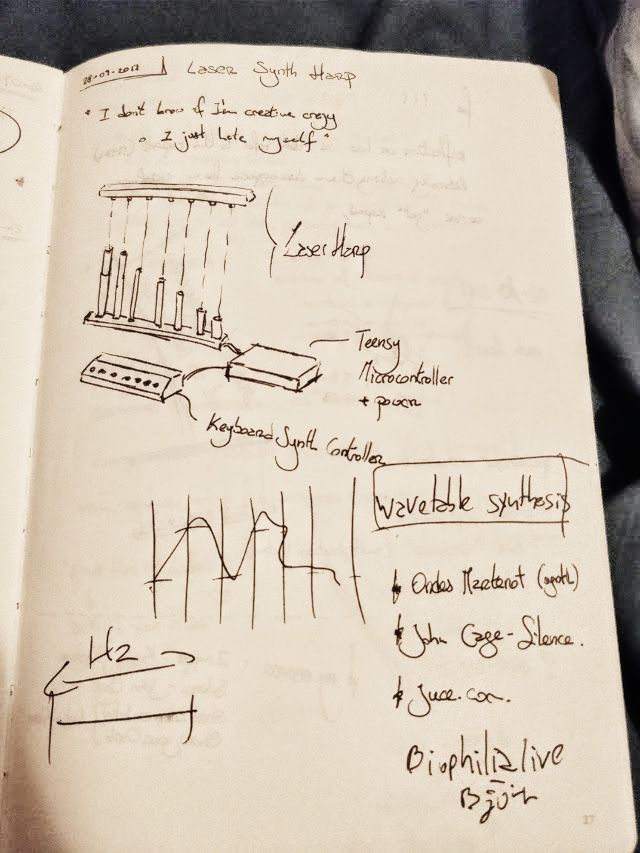 28-09-2017 Laser Synth Harp
* I don't know if I'm creative enough
o I just hate myself"
Laser Harp
Teensy
Microcontroller
+ power
Keyboard Synth Controller
wavetable synthesis
Ondes Martenot (synth)
John Cage - Silence.
Juce.com.
Hz
Biophilia live
Björk
27